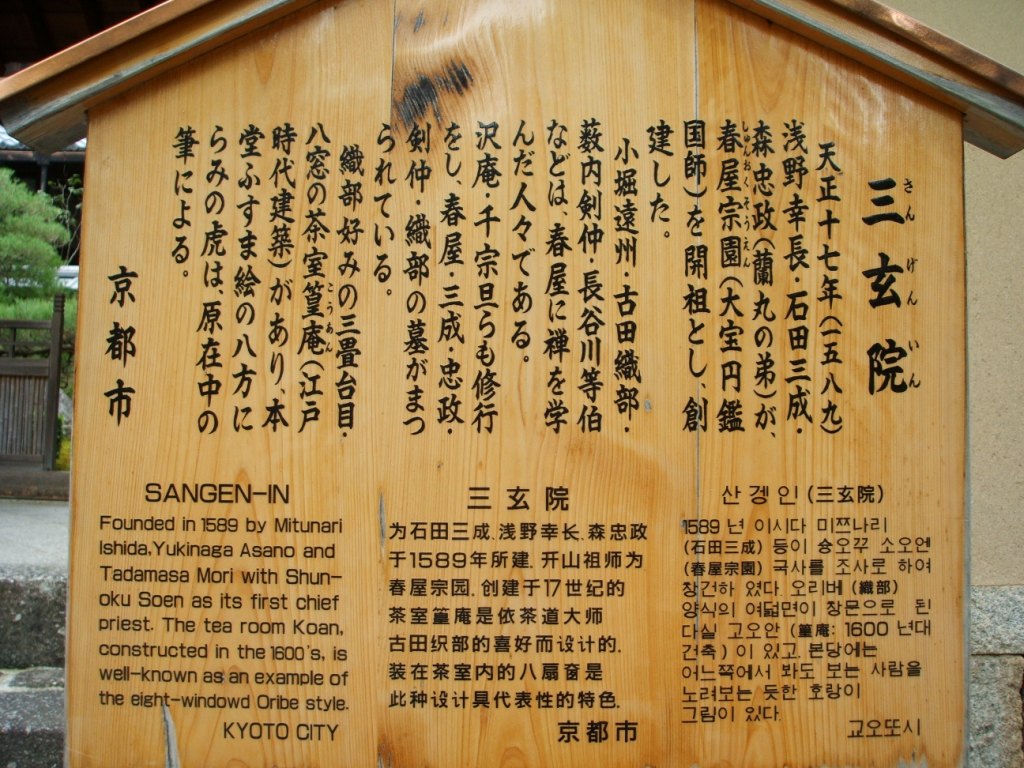 三玄院
さんげんいん
天正十七年(一五八九)
浅野幸長・石田三成・
森忠政(蘭丸の弟)が、
春屋宗園(大宝円鑑
しゅんおくそうえん
国師)を開祖とし、創
建した。
小堀遠州・古田織部・
薮内剣仲・長谷川等伯
などは、春屋に禅を学
んだ人々である。
沢庵・千宗旦らも修行
をし、春屋・三成・忠政・
剣仲・織部の墓がまつ
られている。
織部好みの三畳台目・
八窓の茶室篁庵(江戸
こうあん
時代建築)があり、本
堂ふすま絵の八方に
らみの虎は、原在中の
筆による。
京都市
SANGEN-IN
Founded in 1589 by Mitunari
Ishida,Yukinaga Asano and
Tadamasa Mori with Shun-
oku Soen as its first chief
priest. The tea room Koan,
constructed in the 1600's, is
well-known as an example of
the eight-windowd Oribe style.
KYOTO CITY
三玄院
为石田三成、浅野幸长、森忠政
于1589年所建. 开山祖师为
春屋宗园. 创建于17世纪的
茶室篁庵是依茶道大师
古田织部的喜好而设计的.
装在茶室内的八扇窗是
此种设计具代表性的特色.
京都市
산겡인(三玄院)
1589 년 이시다 미쯔나리
(石田三成) 등이 슝오꾸 소오엔
(春屋宗園) 국사를 조사로 하여
창건하 였다. 오리베 (織部)
양식의 여덟면이 창문으로 된
다실 고오안 (篁庵: 1600 년대
건축) 이 있고, 본당에는
어느쪽에서 봐도 보는 사람을
노려보는 듯한 호랑이
그림이 있다.
교오또시